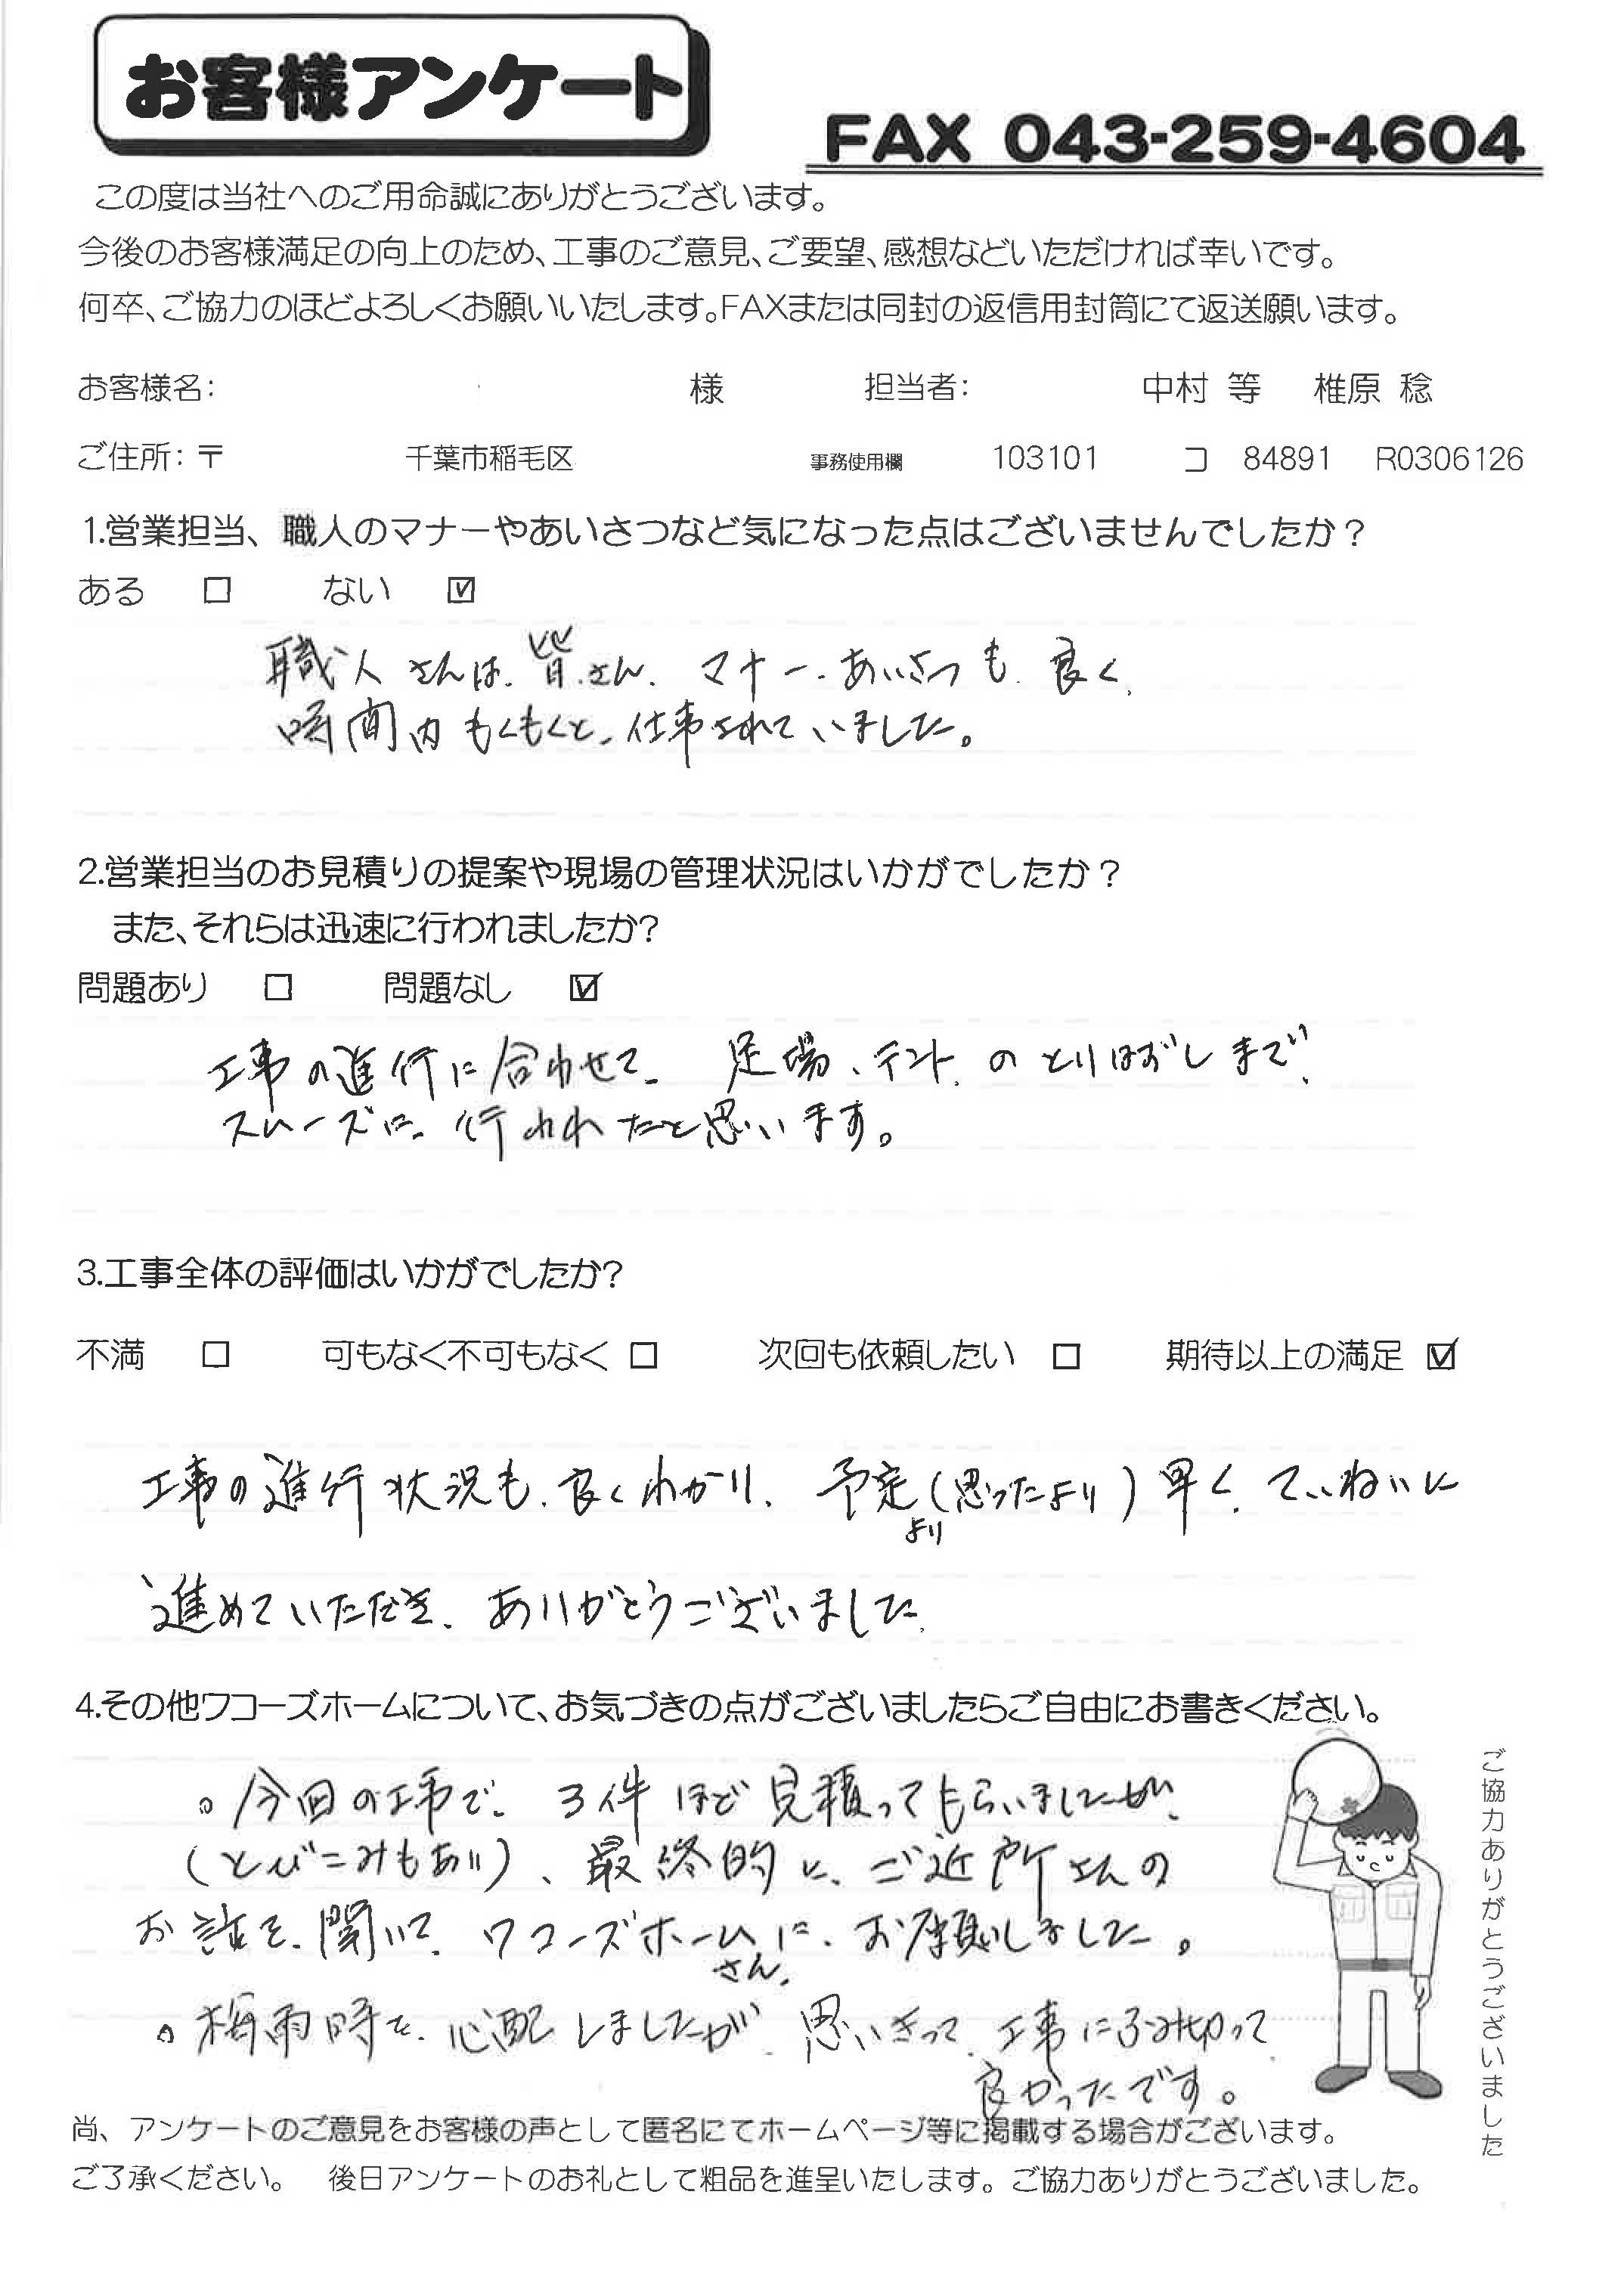 お客様アンケート
FAX 043-259-4604
この度は当社へのご用命誠にありがとうございます。
今後のお客様満足の向上のため、工事のご意見、ご要望、感想などいただければ幸いです。
何卒、ご協力のほどよろしくお願いいたします。FAXまたは同封の返信用封筒にて返送願います。
お客様名: 様 担当者: 中村 等 椎原 稔
ご住所: 〒 千葉市稲毛区 事務使用欄 103101 コ 84891 R0306126
1.営業担当、職人のマナーやあいさつなど気になった点はございませんでしたか？
ある □ ない ☑
職人さんは、皆さん、マナー、あいさつも、良く、
時間内もくもくと、仕事されていました。
2.営業担当のお見積りの提案や現場の管理状況はいかがでしたか？
また、それらは迅速に行われましたか?
問題あり □ 問題なし ☑
工事の進行に合わせて、足場、テント、のとりはずしまで、
スムーズに、行われたと思います。
3.工事全体の評価はいかがでしたか?
不満 □ 可もなく不可もなく □ 次回も依頼したい □ 期待以上の満足 ☑
工事の進行状況も、良くわかり、予定より(思ったより)早く、ていねいに
進めていただき、ありがとうございました、
4.その他ワコーズホームについて、お気づきの点がございましたらご自由にお書きください。
。今回の工事で、3件ほど見積ってもらいましたが、
(とびこみもあり)、最終的に、ご近所さんの
お話を、聞いて、ワコーズホームさんに、お願いしました。
。梅雨時を、心配しましたが、思いきって、工事にふみ切って、
良かったです。
尚、アンケートのご意見をお客様の声として匿名にてホームページ等に掲載する場合がございます。
ご了承ください。 後日アンケートのお礼として粗品を進呈いたします。ご協力ありがとうございました。
ご協力ありがとうございました